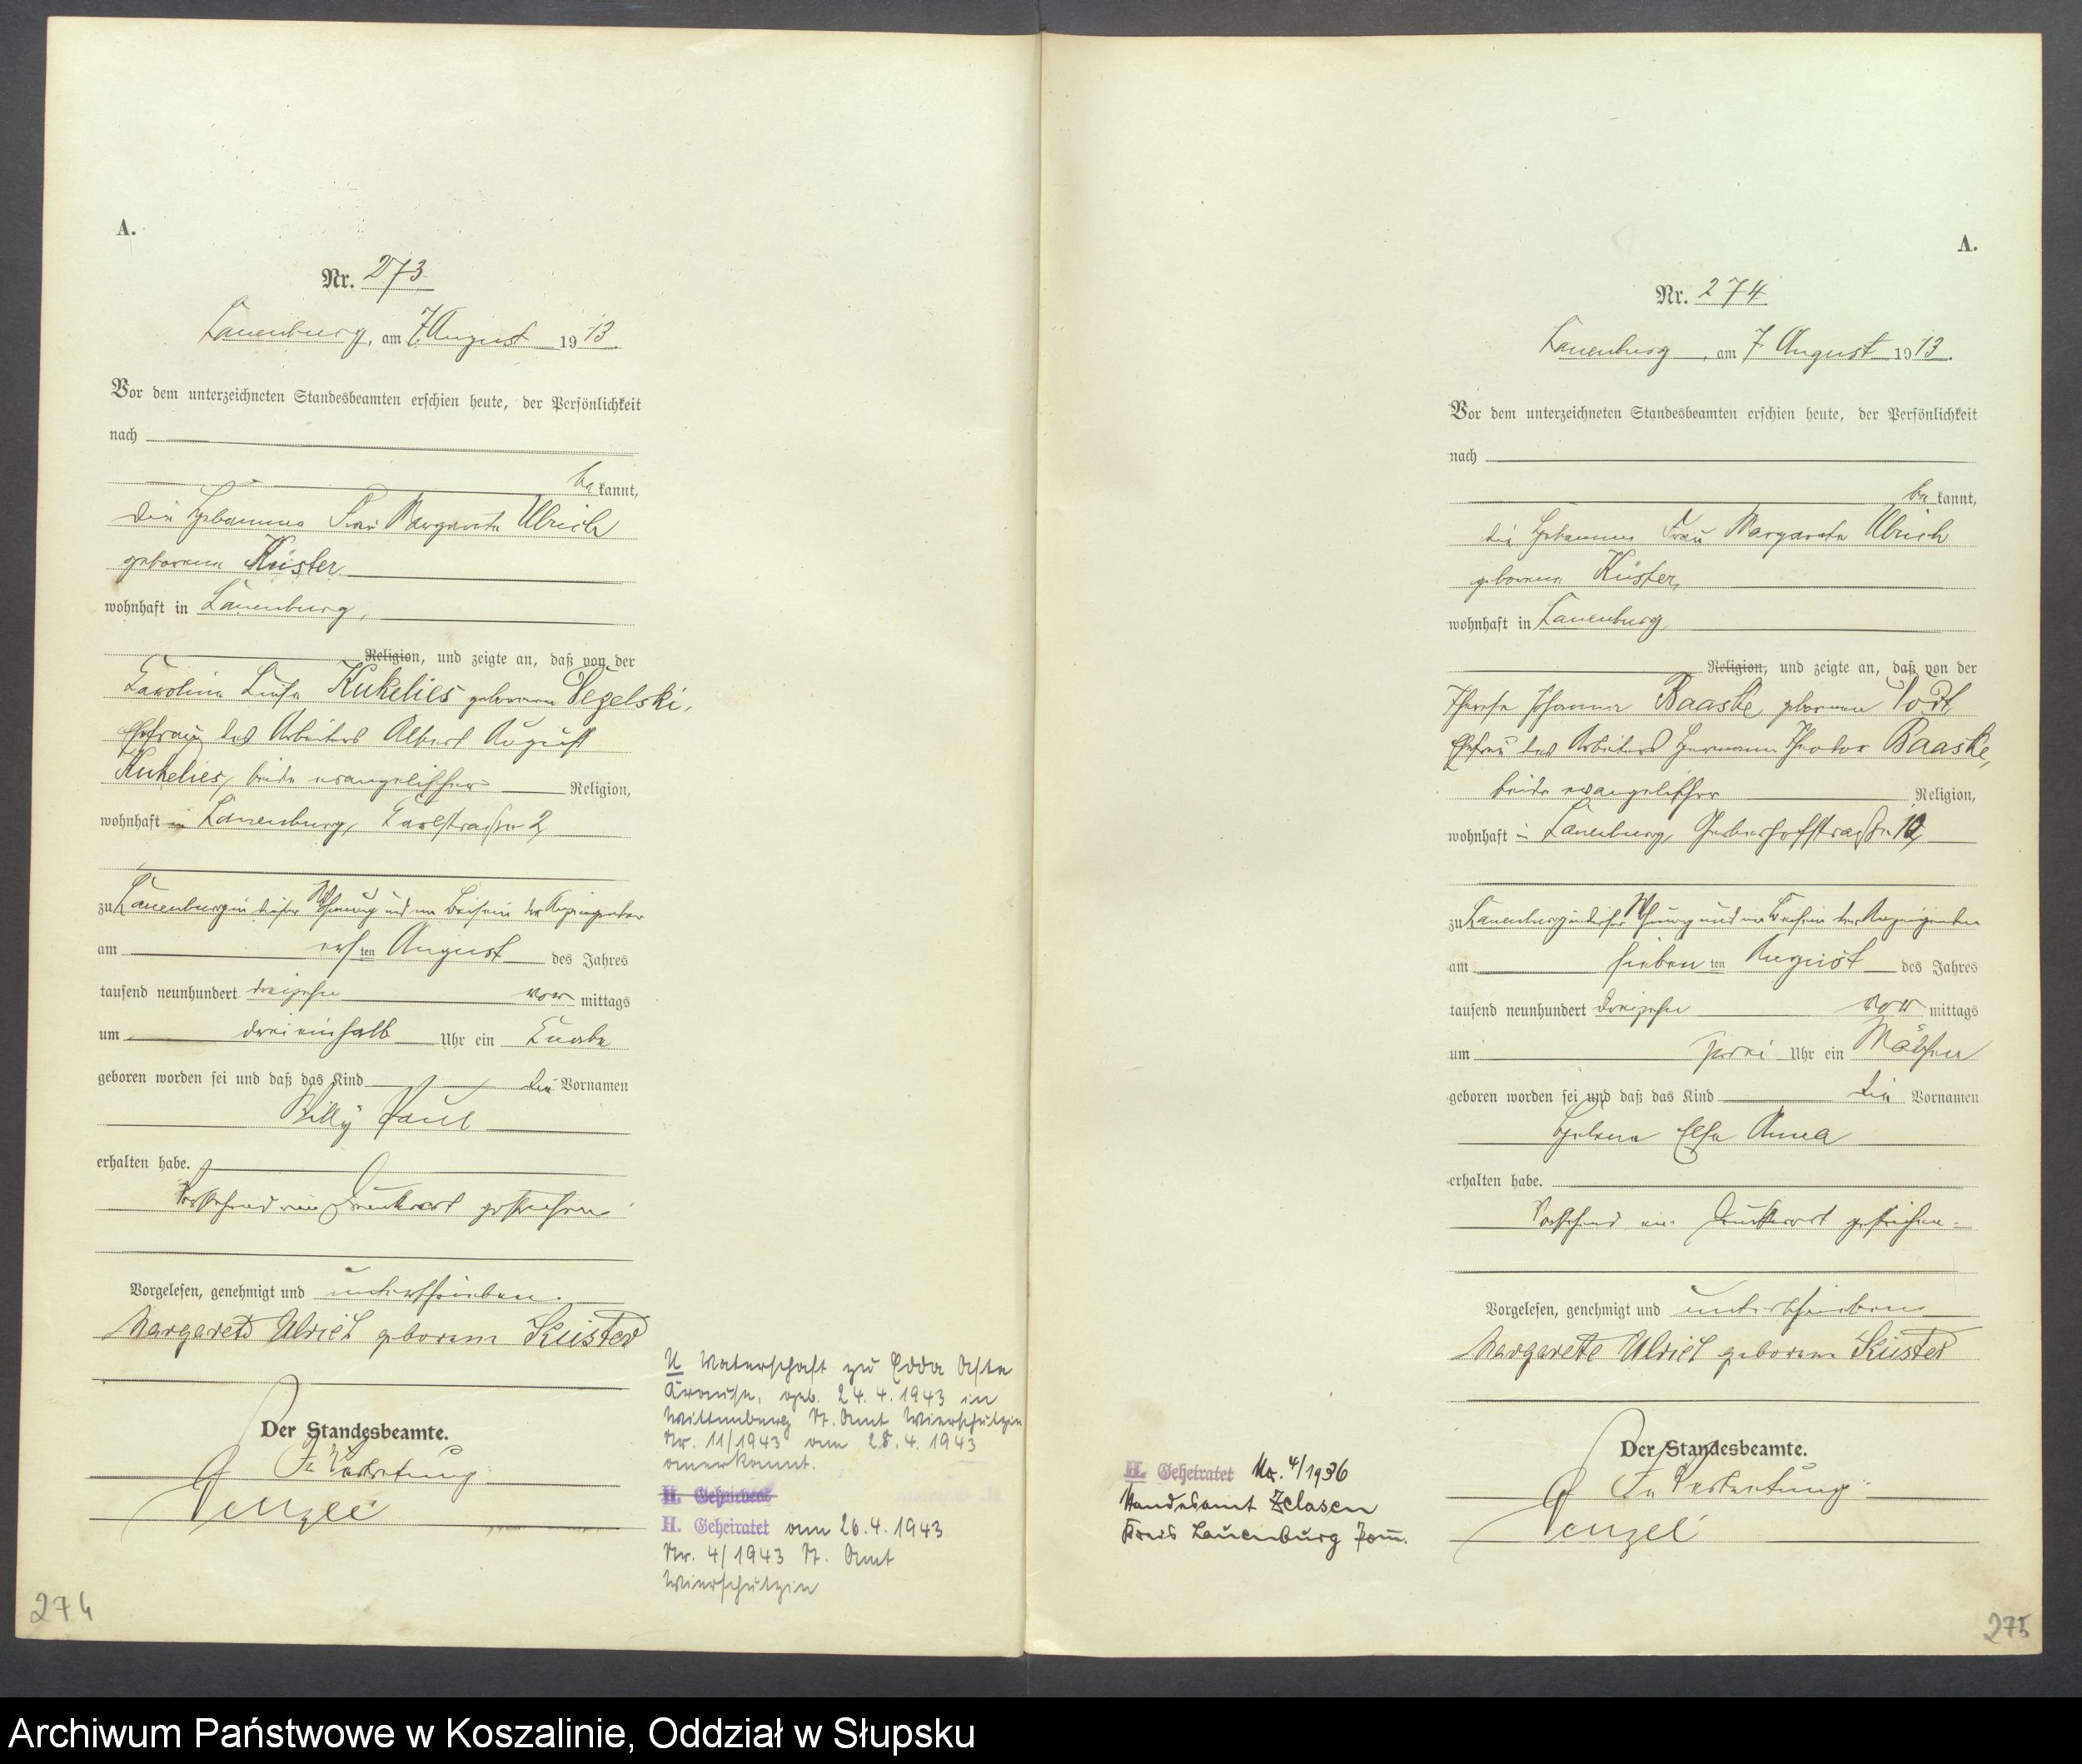 A.
Nr. 273.
Lauenburg, am 7. August 1913.
Vor dem unterzeichneten Standesbeamten erschien heute, der Persönlichkeit
nach
be kannt,
die Hebamme Frau Margarete Ulrich
geborene Küster
wohnhaft in Lauenburg,
Religion, und zeigte an, daß von der
Karoline Luise Kukelies geborenen Vegelski,
Ehefrau des Arbeiters Albert August
Kukelies, beide evangelischer Religion,
wohnhaft in Lauenburg, Karlstraße 2,
zu Lauenburg in dieser Wohnung und im Beisein der Anzeigenden
am ersten August des Jahres
tausend neunhundert dreizehn vor mittags
um dreieinhalb Uhr ein Knabe
geboren worden sei und daß das Kind die Vornamen
Willy Paul
erhalten habe.
Vorstehend ein Druckwort gestrichen.
Vorgelesen, genehmigt und unterschrieben.
Margarete Ulrich geborene Küster
Der Standesbeamte.
In Vertretung.
U Vaterschaft zu Edda
Krause, geb. 24.4.1943 in
Wittenberg St. Amt Wierschutzin
Nr. 11/1943 vom 28.4.1943
anerkannt.
H. Geheiratet am 26.4.1943
Nr. 4/1943 St. Amt
Wierschutzin
274
A.
Nr. 274
Lauenburg, am 7. August 1913.
Vor dem unterzeichneten Standesbeamten erschien heute, der Persönlichkeit
nach
be kannt,
die Hebamme Frau Margarete Ulrich
geborene Küster,
wohnhaft in Lauenburg,
Religion, und zeigte an, daß von der
Therese Johanna Baaske, geborenen Vodt,
Ehefrau des Arbeiters Hermann Theodor Baaske,
beide evangelischer Religion,
wohnhaft in Lauenburg, Gerberhofstraße
zu Lauenburg in dieser Wohnung und im Beisein der Anzeigenden
am siebenten August des Jahres
tausend neunhundert dreizehn vor mittags
um zwei Uhr ein Mädchen
geboren worden sei und daß das Kind die Vornamen
Helene Else Anna
erhalten habe.
Vorstehend ein Druckwort gestrichen.
Vorgelesen, genehmigt und unterschrieben
Margarete Ulrich geborene Küster
Der Standesbeamte.
In Vertretung:
H. Geheiratet Nr. 4/1936
Standesamt Zelasen
Kreis Lauenburg Pom.
275
Archiwum Państwowe w Koszalinie, Oddział w Słupsku